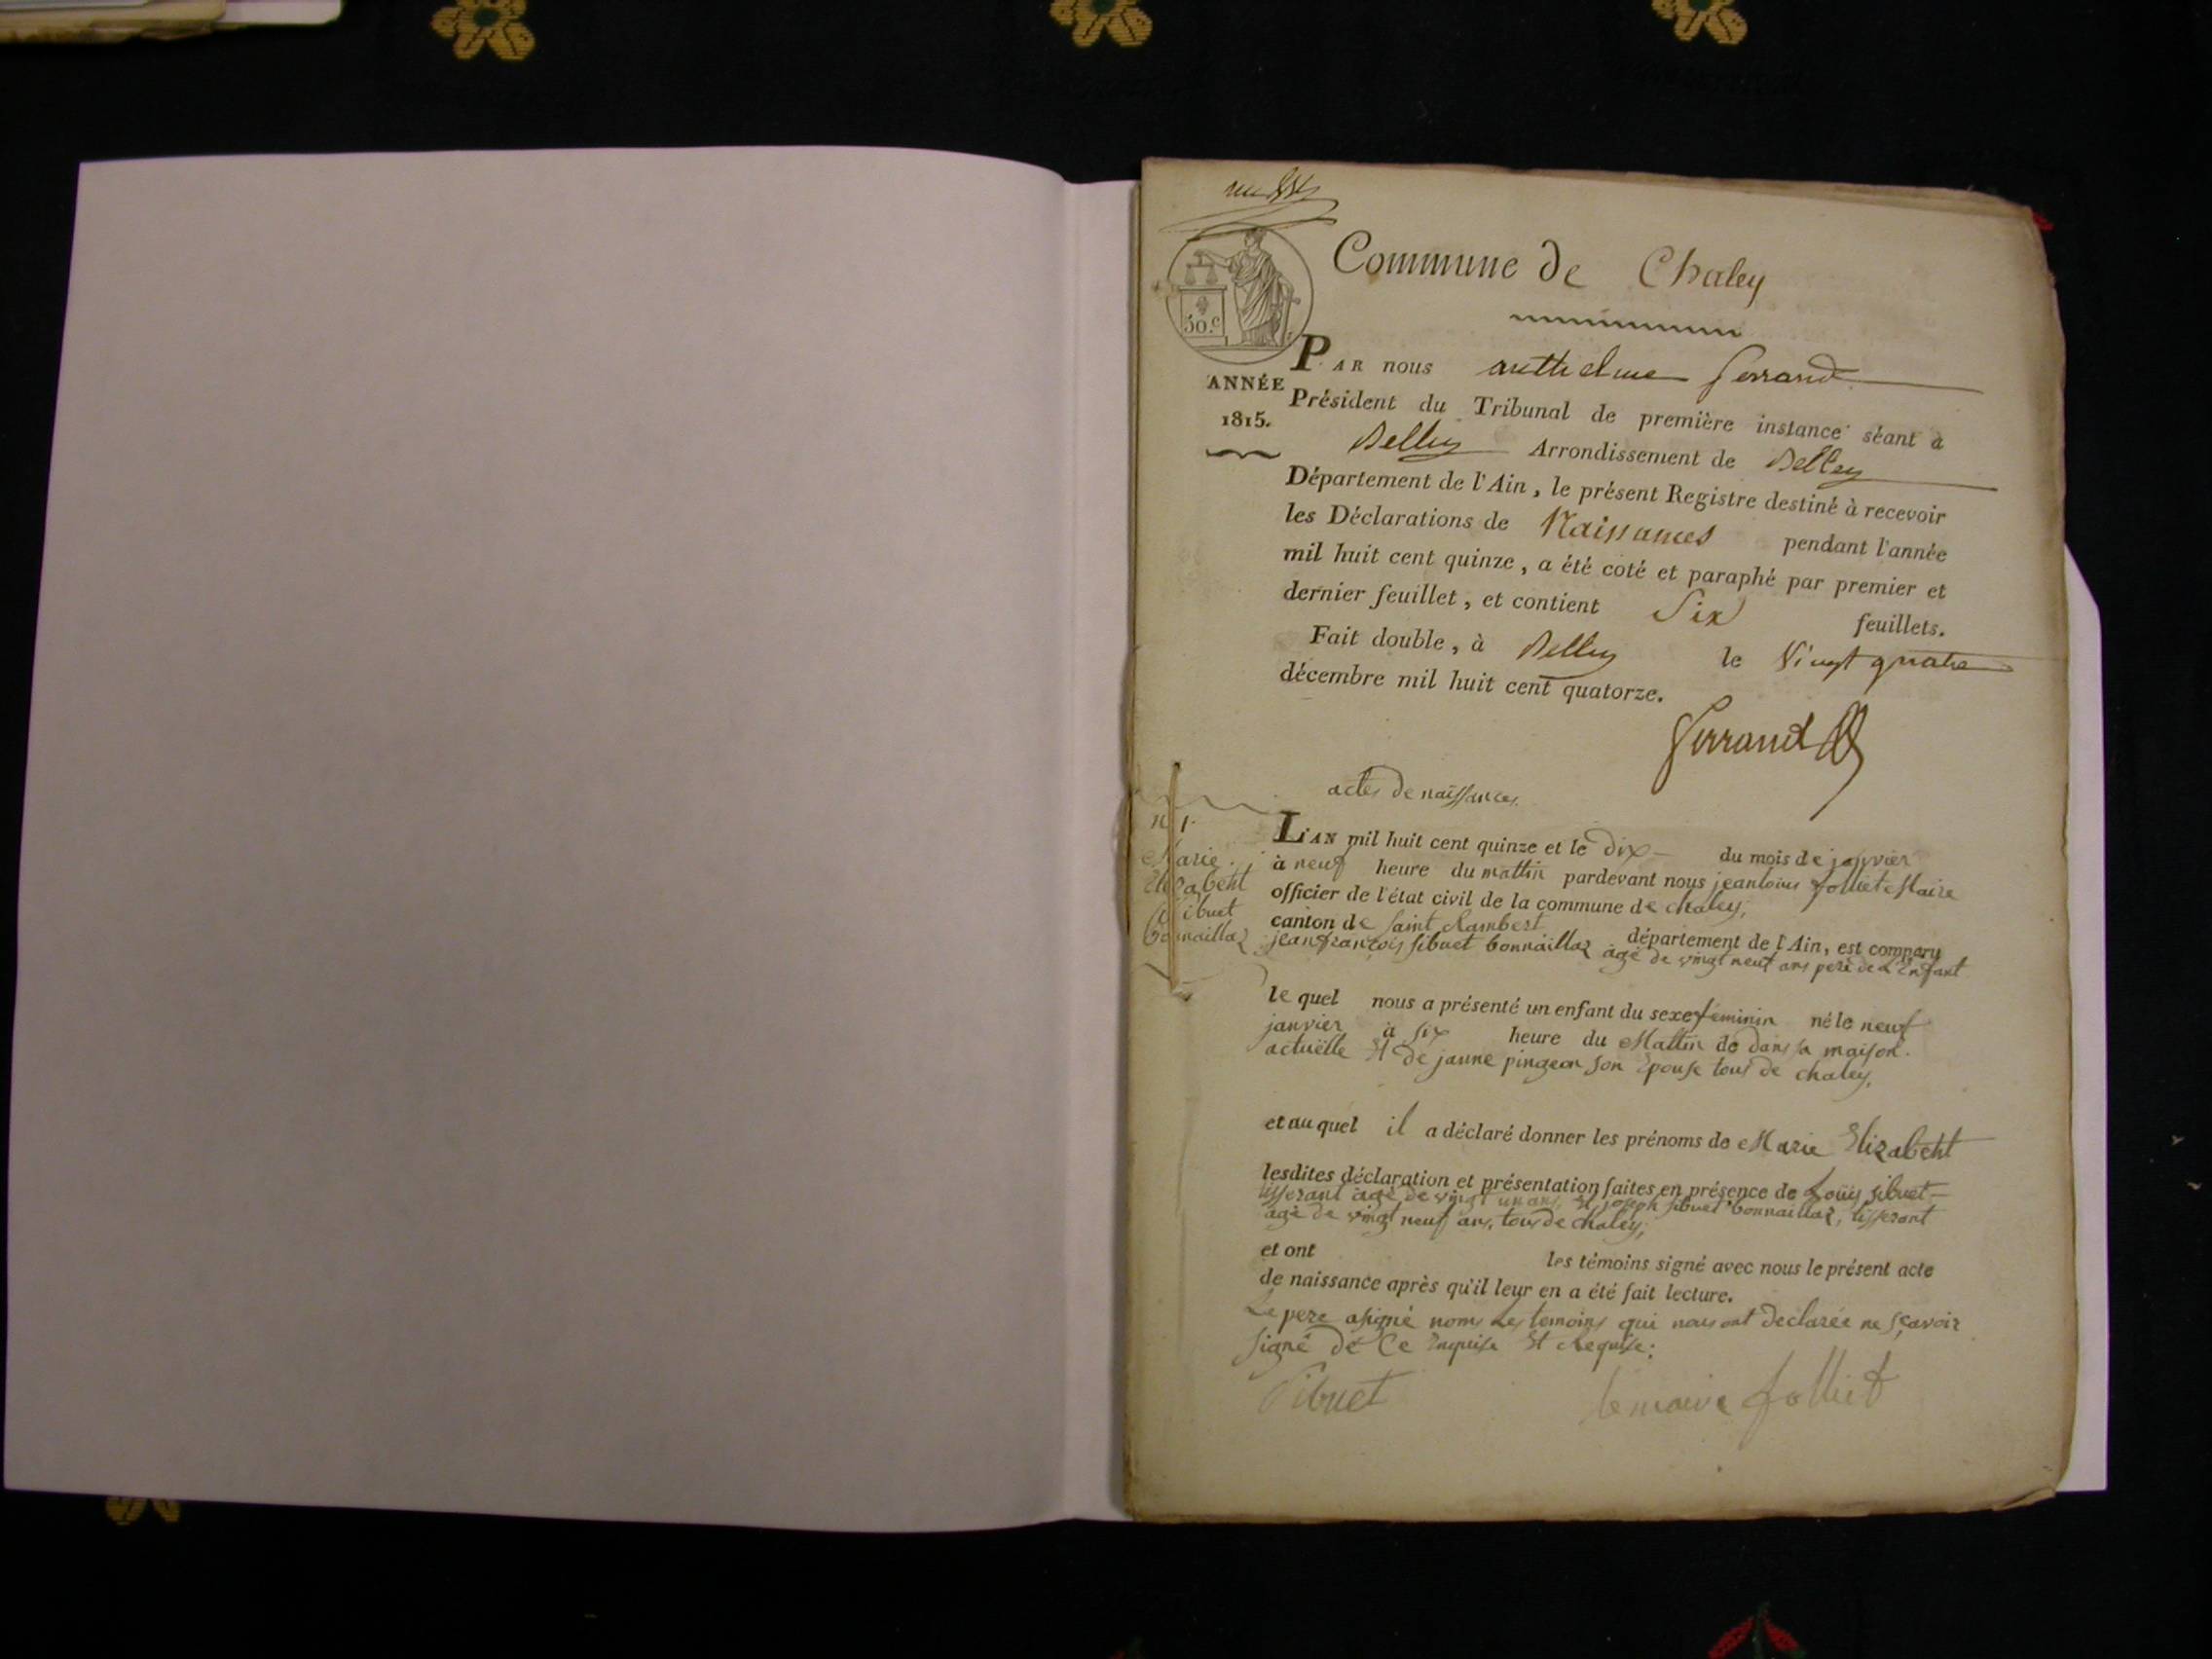 Commune de Chaley
50.c
ANNÉE
1815.
PAR nous anthelme ferrand
Président du Tribunal de première instance séant à
Belley Arrondissement de Belley
Département de l'Ain, le présent Registre destiné à recevoir
les Déclarations de Naissances pendant l'année
mil huit cent quinze, a été coté et paraphé par premier et
dernier feuillet, et contient Six feuillets.
Fait double, à Belley le Vingt quatre
décembre mil huit cent quatorze.
ferrand
actes de naissances.
n 1.
Marie
Elizabeht
Sibuet
bonnaillaz
L'AN mil huit cent quinze et le dix du mois de janvier
à neuf heure du mattin pardevant nous jeanloius jolliet Maire
officier de l'état civil de la commune de chaley,
canton de saint Rambert département de l'Ain, est comparu
jeanfrançois sibuet bonnaillaz agé de vingt neuf ans pere de l'Enfant
le quel nous a présenté un enfant du sexe feminin né le neuf
janvier à six heure du Mattin de dans sa maison.
actuëlle Et de janne pingeon son Epouse tous de chaley,
et au quel il a déclaré donner les prénoms de Marie Elizabeht
lesdites déclaration et présentation faites en présence de Louis sibuet
tisserant agé de vingt un ans, Et joseph sibuet bonnaillaz, tisserant
agé de vingt neuf ans, tous de chaley,
et ont les témoins signé avec nous le présent acte
de naissance après qu'il leur en a été fait lecture.
Le pere asigné nom Les temoins qui nous ont declarée ne sçavoir
signé de Ce Enquise Et Requise:
Sibuet le maire jolliet